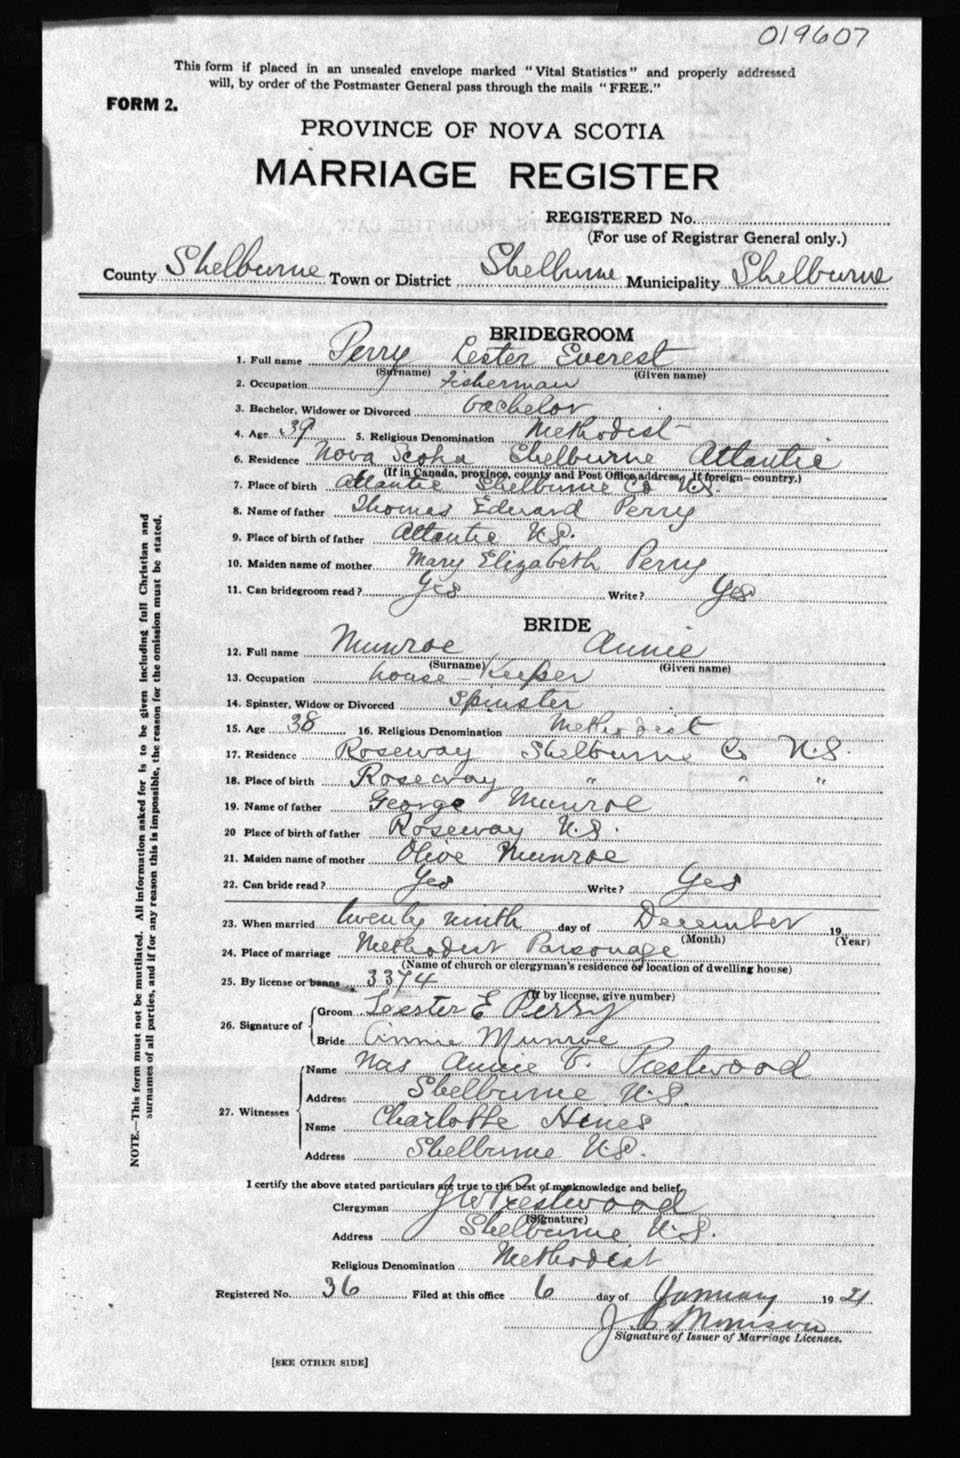 019607
This form if placed in an unsealed envelope marked "Vital Statistics" and properly addressed
will, by order of the Postmaster General pass through the mails "FREE."
FORM 2.
PROVINCE OF NOVA SCOTIA
MARRIAGE REGISTER
REGISTERED No.
(For use of Registrar General only.)
County Shelburne Town or District Shelburne Municipality Shelburne
BRIDEGROOM
1. Full name Perry Lester Everest
(Surname) (Given name)
2. Occupation Fisherman
3. Bachelor, Widower or Divorced bachelor
4. Age 39 5. Religious Denomination Methodist
6. Residence Nova Scotia Shelburne Atlantic
(If in Canada, province, county and Post Office address, If foreign—country.)
7. Place of birth Atlantic Shelburne Co N.S.
8. Name of father Thomas Edward Perry
9. Place of birth of father Atlantic N.S.
10. Maiden name of mother Mary Elizabeth Perry
11. Can bridegroom read? Yes Write? Yes
BRIDE
12. Full name Munroe Annie
(Surname) (Given name)
13. Occupation house-Keeper
14. Spinster, Widow or Divorced Spinster
15. Age 38 16. Religious Denomination Methodist
17. Residence Roseway Shelburne Co N.S.
18. Place of birth Roseway " " "
19. Name of father George Munroe
20 Place of birth of father Roseway N.S.
21. Maiden name of mother Olive Munroe
22. Can bride read? Yes Write? Yes
23. When married twenty ninth day of December 19
(Month) (Year)
24. Place of marriage Methodist Parsonage
(Name of church or clergyman's residence or location of dwelling house)
25. By license or banns 3374
(If by license, give number)
26. Signature of
Groom Lester E Perry
Bride Annie Munroe
27. Witnesses
Name Mrs Annie E. Prestwood
Address Shelburne N.S.
Name Charlotte Hines
Address Shelburne N.S.
I certify the above stated particulars are true to the best of my knowledge and belief.
Clergyman J W Prestwood
(Signature)
Address Shelburne N.S.
Religious Denomination Methodist
Registered No. 36 Filed at this office 6 day of January 19 21
J. C. Morrison
Signature of Issuer of Marriage Licenses.
[SEE OTHER SIDE]
NOTE.—This form must not be mutilated. All information asked for is to be given including full Christian and
surnames of all parties, and if for any reason this is impossible, the reason for the omission must be stated.